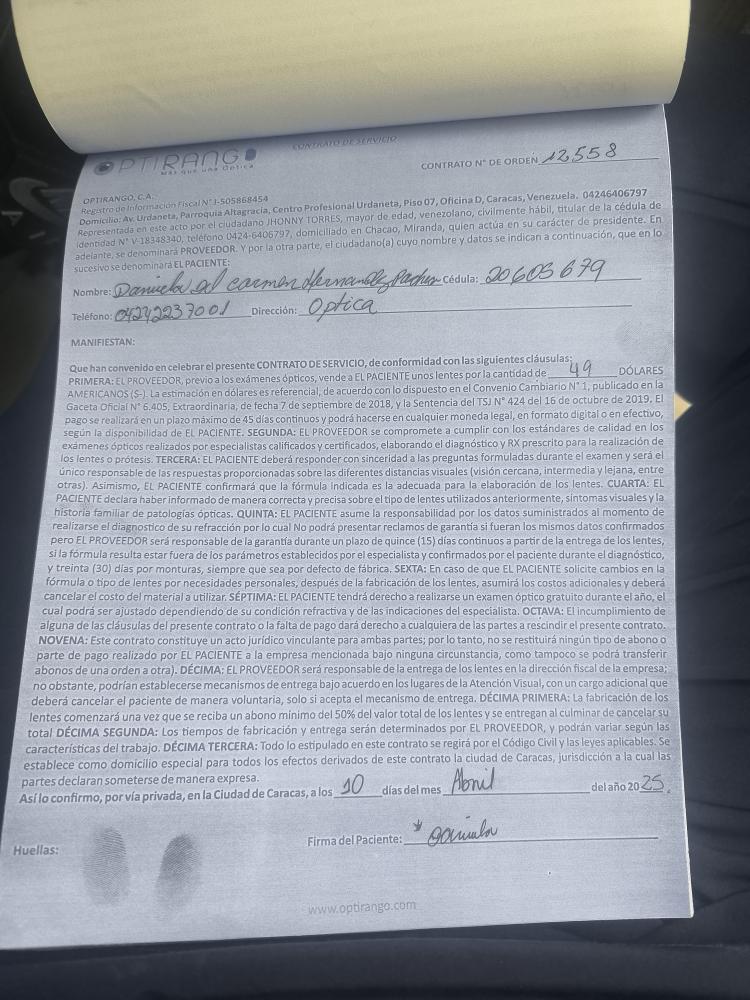 CONTRATO DE SERVICIO
OPTIRANGO
Más que una Óptica
CONTRATO N° DE ORDEN 12558
OPTIRANGO, C.A.
Registro de Información Fiscal N° J-505868454
Domicilio: Av. Urdaneta, Parroquia Altagracia, Centro Profesional Urdaneta, Piso 07, Oficina D, Caracas, Venezuela. 04246406797
Representada en este acto por el ciudadano JHONNY TORRES, mayor de edad, venezolano, civilmente hábil, titular de la cédula de
Identidad N° V-18348340, teléfono 0424-6406797, domiciliado en Chacao, Miranda, quien actúa en su carácter de presidente. En
adelante, se denominará PROVEEDOR. Y por la otra parte, el ciudadano(a) cuyo nombre y datos se indican a continuación, que en lo
sucesivo se denominará EL PACIENTE:
Nombre: Daniela del carmen Hernandez Cédula: 20605679
Teléfono: 04242237001 Dirección: Optica
MANIFIESTAN:
Que han convenido en celebrar el presente CONTRATO DE SERVICIO, de conformidad con las siguientes cláusulas:
PRIMERA: EL PROVEEDOR, previo a los exámenes ópticos, vende a EL PACIENTE unos lentes por la cantidad de 49 DÓLARES
AMERICANOS ($-). La estimación en dólares es referencial, de acuerdo con lo dispuesto en el Convenio Cambiario N° 1, publicado en la
Gaceta Oficial N° 6.405, Extraordinaria, de fecha 7 de septiembre de 2018, y la Sentencia del TSJ N° 424 del 16 de octubre de 2019. El
pago se realizará en un plazo máximo de 45 días continuos y podrá hacerse en cualquier moneda legal, en formato digital o en efectivo,
según la disponibilidad de EL PACIENTE. SEGUNDA: EL PROVEEDOR se compromete a cumplir con los estándares de calidad en los
exámenes ópticos realizados por especialistas calificados y certificados, elaborando el diagnóstico y RX prescrito para la realización de
los lentes o prótesis. TERCERA: EL PACIENTE deberá responder con sinceridad a las preguntas formuladas durante el examen y será el
único responsable de las respuestas proporcionadas sobre las diferentes distancias visuales (visión cercana, intermedia y lejana, entre
otras). Asimismo, EL PACIENTE confirmará que la fórmula indicada es la adecuada para la elaboración de los lentes. CUARTA: EL
PACIENTE declara haber informado de manera correcta y precisa sobre el tipo de lentes utilizados anteriormente, síntomas visuales y la
historia familiar de patologías ópticas. QUINTA: EL PACIENTE asume la responsabilidad por los datos suministrados al momento de
realizarse el diagnostico de su refracción por lo cual No podrá presentar reclamos de garantía si fueran los mismos datos confirmados
pero EL PROVEEDOR será responsable de la garantía durante un plazo de quince (15) días continuos a partir de la entrega de los lentes,
si la fórmula resulta estar fuera de los parámetros establecidos por el especialista y confirmados por el paciente durante el diagnóstico,
y treinta (30) días por monturas, siempre que sea por defecto de fábrica. SEXTA: En caso de que EL PACIENTE solicite cambios en la
fórmula o tipo de lentes por necesidades personales, después de la fabricación de los lentes, asumirá los costos adicionales y deberá
cancelar el costo del material a utilizar. SÉPTIMA: EL PACIENTE tendrá derecho a realizarse un examen óptico gratuito durante el año, el
cual podrá ser ajustado dependiendo de su condición refractiva y de las indicaciones del especialista. OCTAVA: El incumplimiento de
alguna de las cláusulas del presente contrato o la falta de pago dará derecho a cualquiera de las partes a rescindir el presente contrato.
NOVENA: Este contrato constituye un acto jurídico vinculante para ambas partes; por lo tanto, no se restituirá ningún tipo de abono o
parte de pago realizado por EL PACIENTE a la empresa mencionada bajo ninguna circunstancia, como tampoco se podrá transferir
abonos de una orden a otra). DÉCIMA: EL PROVEEDOR será responsable de la entrega de los lentes en la dirección fiscal de la empresa;
no obstante, podrían establecerse mecanismos de entrega bajo acuerdo en los lugares de la Atención Visual, con un cargo adicional que
deberá cancelar el paciente de manera voluntaria, solo si acepta el mecanismo de entrega. DÉCIMA PRIMERA: La fabricación de los
lentes comenzará una vez que se reciba un abono mínimo del 50% del valor total de los lentes y se entregan al culminar de cancelar su
total DÉCIMA SEGUNDA: Los tiempos de fabricación y entrega serán determinados por EL PROVEEDOR, y podrán variar según las
características del trabajo. DÉCIMA TERCERA: Todo lo estipulado en este contrato se regirá por el Código Civil y las leyes aplicables. Se
establece como domicilio especial para todos los efectos derivados de este contrato la ciudad de Caracas, jurisdicción a la cual las
partes declaran someterse de manera expresa.
Así lo confirmo, por vía privada, en la Ciudad de Caracas, a los 10 días del mes Abril del año 2025.
Huellas:
Firma del Paciente: * Daniela
www.optirango.com